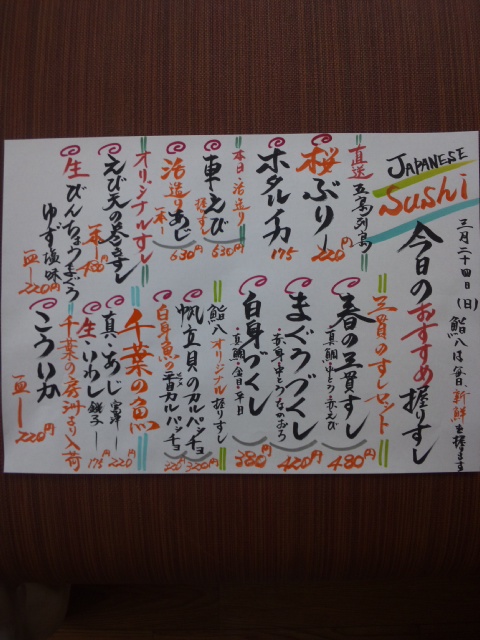 三月二十四日(日)
鮨八は毎日、新鮮を握ります
JAPANESE
Sushi
今日のおすすめ握りすし
直送 五島列島
桜ぶり 220円
ホタルイカ 175
本日・活造り
車えび 630円
活造りあじ 一本 630円
オリジナルすし
えび天の巻きすし 一本 400円
生びんちょうまぐろ
ゆず塩味 一皿 220円
三貫のすしセット
春の三貫すし 480円
真鯛・中とろ・赤えび
まぐろづくし 420円
赤身・中とろ・なかおち
白身づくし 380円
真鯛・金目・平目
鮨八オリジナル握りすし
帆立貝のカルパッチョ 320円
白身魚のカルパッチョ 220円
千葉の魚
真あじ 220円
生いわし 銚子 175円
千葉の房州より入荷
こういか 一皿 220円